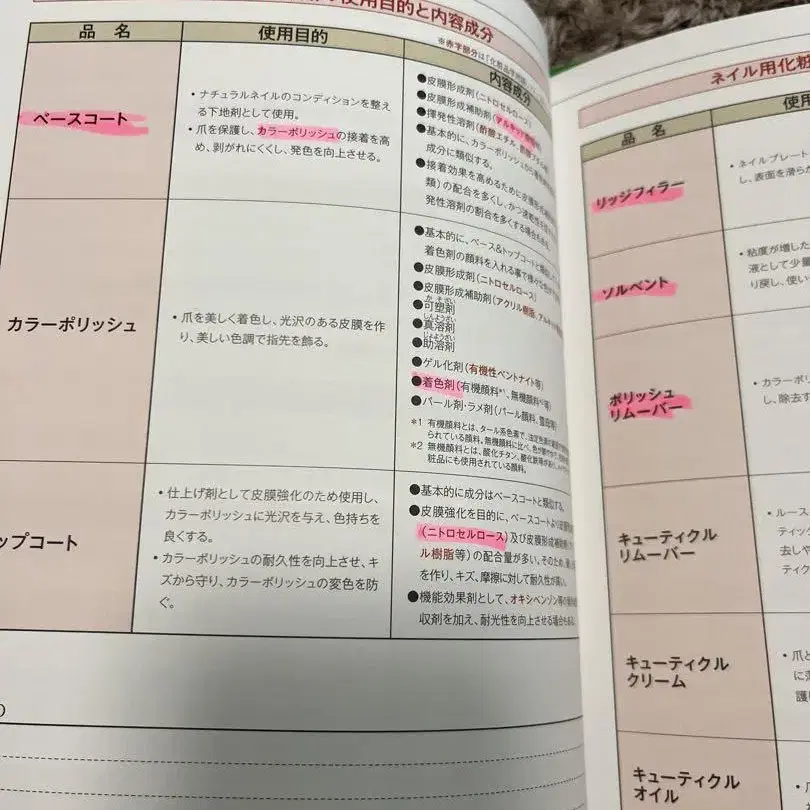 の使用目的と内容成分
※赤字部分は「化粧品
品 名
使用目的
内容成分
ベースコート
・ナチュラルネイルのコンディションを整え
る下地剤として使用。
・爪を保護し、カラーポリッシュの接着を高
め、剥がれにくくし、発色を向上させる。
●皮膜形成剤（ニトロセルロース）
●皮膜形成補助剤（アルキッド
●揮発性溶剤（酢酸エチル・酢酸
●基本的に、カラーポリッシュから
成分に類似する。
●接着効果を高めるために皮膜形成
類）の配合を多くし、かつ速乾性
発性溶剤の割合を多くする場合もある。
カラーポリッシュ
・爪を美しく着色し、光沢のある皮膜を作
り、美しい色調で指先を飾る。
●基本的に、ベース&トップコートと類似
着色剤の顔料を入れる事で様々な
●皮膜形成剤（ニトロセルロース）
●皮膜形成補助剤（アクリル樹脂、アルキッド
かそざい
●可塑剤
しんようざい
●真溶剤
じょようざい
●助溶剤
●ゲル化剤（有機性ベントナイト等）
●着色剤（有機顔料*1、無機顔料*2等）
●パール剤・ラメ剤（パール顔料、雲母等）
*1 有機顔料とは、タール系色素で、法定色素
られている顔料。無機顔料に比べ、色が鮮やかで
*2 無機顔料とは、酸化チタン、酸化鉄等があり、
粧品にも使用されている顔料。
ップコート
・仕上げ剤として皮膜強化のため使用し、
カラーポリッシュに光沢を与え、色持ちを
良くする。
・カラーポリッシュの耐久性を向上させ、キ
ズから守り、カラーポリッシュの変色を防
ぐ。
●基本的に成分はベースコートと類似する。
●皮膜強化を目的に、ベースコートより
（ニトロセルロース）及び皮膜形成補助剤
ル樹脂等）の配合量が多い。そのため、
を作り、キズ、摩擦に対して耐久性が高い。
●機能効果剤として、オキシベンゾン等の
収剤を加え、耐光性を向上させる場合もある。
ネイル用化粧
品 名
使用
リッジフィラー
・ネイルプレート
し、表面を滑らか
ソルベント
・粘度が増した
液として少量
り戻し、使い
ポリッシュ
リムーバー
・カラーポリ
し、除去す
キューティクル
リムーバー
・ルース
ティッ
去しや
ティク
キューティクル
クリーム
・爪と
に
護
キューティクル
オイル